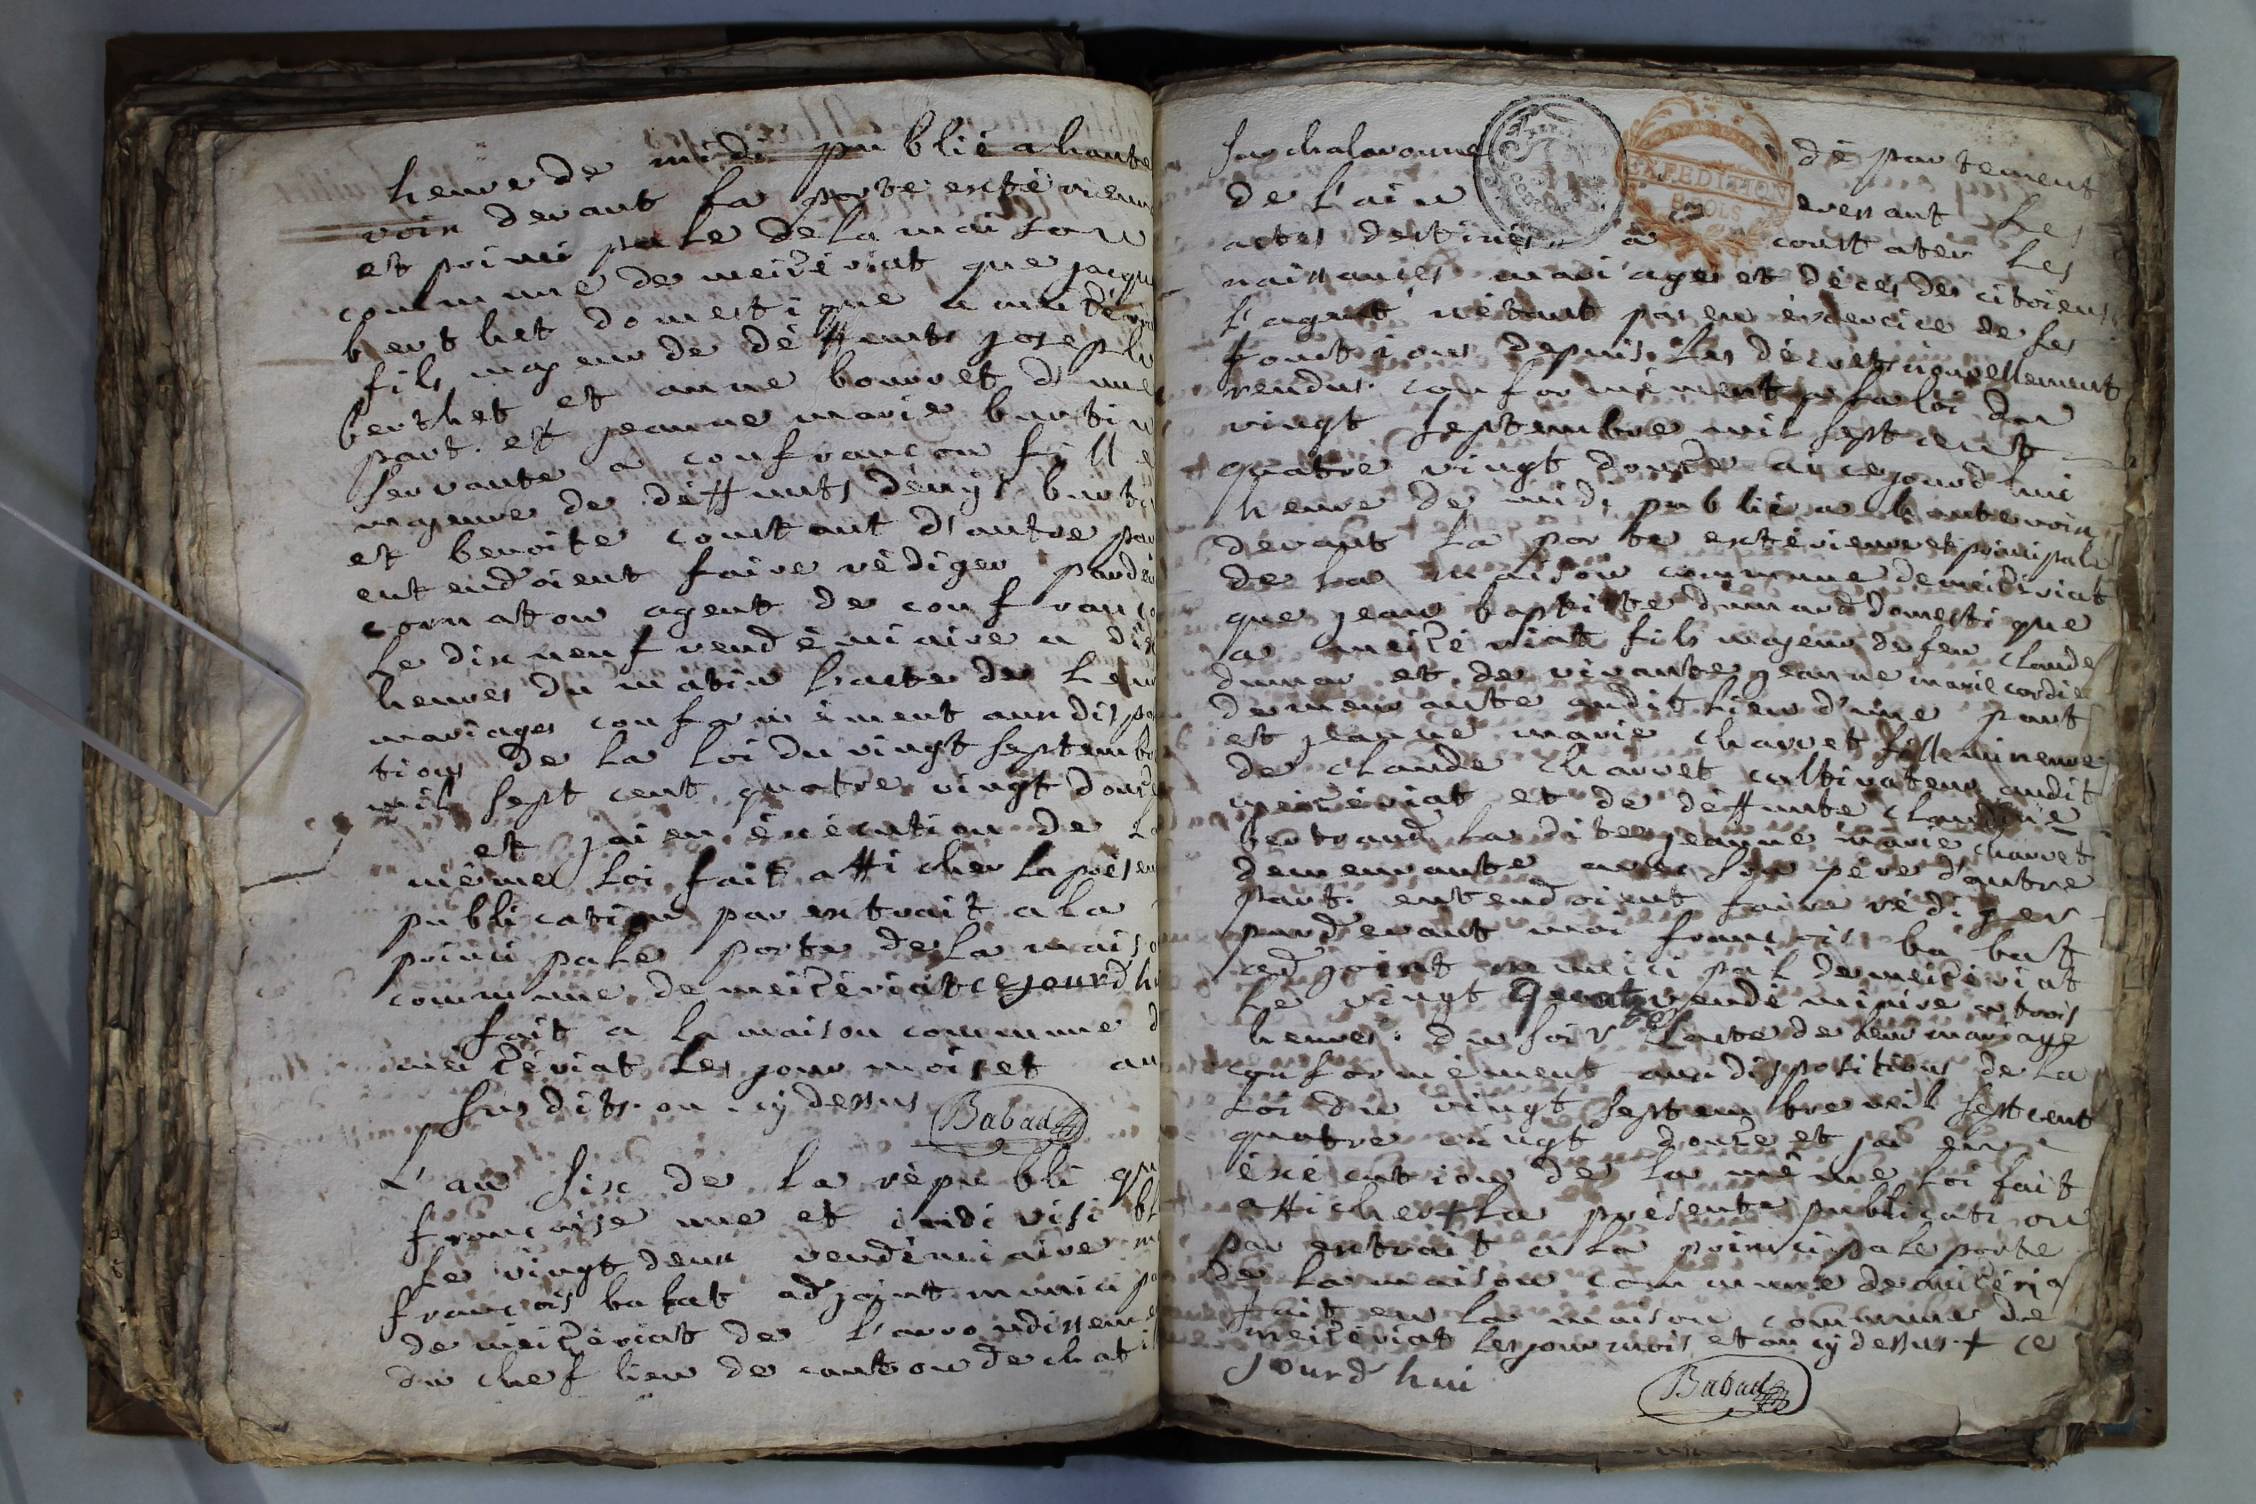 heure de midi publié a haute
voix devant la porte exterieure
et princi pale de la maison
commune de meizériat que jacque
berthet domesti que a
fils majeur de déffunts joseph
berthet et anne bourret d'une
part. et jeanne marie burtin
servante a confrançon fille
majeure de déffunts dényis burt
et benoite constant d'autre par
entendoient faire rédiger pardev
cornaton agent de confranço
le dix neuf vendémiaire a dix
heures du matin l'acte de leur
mariages conformément aux dispo
tions de la loi du vingt septemb
mil sept cent quatre vingt douze
et j'ai en éxécution de la
même loi fait afficher la présen
publication par extrait a la
princi pale porte de la maiso
commune de meizériat cejourd'hu
fait a la maison commune d
meizériat les jour mois et an
susdits ou cy dessus Babad
L'an six de la républi qu
françoise une et indi visi bl
le vingt deux vendémiaire
françois babat adjoint munici pa
de meizériat de l'arrondisseme
du chef lieu de canton de chati
sur chalaronne département
de l'ain EXPEDITION exersant les
actes destinés a constater les
naissances mariages et décès des citoiens
l'agent n'étant pas en éxercice de ses
fonctions depuis les décrets nouvellement
rendus conformément a la loi du
vingt septembre mil sept cent
quatre vingt douze ai cejourd'hui
heure de midi publié a hautevoix
devant la porte extérieure et principale
de la maison commune de meizériat
que jean baptiste dumard domesti que
a meizériat fils majeur de feu claude
dumar et de vivante jeanne marie cordie
demeurante audit lieu d'une part
et jeanne marie charvet fille mineure
de claude charvet cultivateur audit
meizériat et de déffunte claudine
bertrand la dite jeanne marie charvet
demeurante avec son pére d'autre
part. entendoient faire rédiger
pardevant moi françois babat
adjoint munici pal de meizériat
le vingt quatre vendémiaire a trois
heures du soir l'acte de leur mariage
conformément aux dispositions de la
loi du vingt septembre mil sept cent
quatre vingt douze et j'ai en
éxécution de la même loi fait
afficher + la présente publication
par extrait a la principale porte
de la maison commune de meizéria
fait en la maison commune de
meizériat les jour mois et an cy dessus + ce
jourd'hui Babad